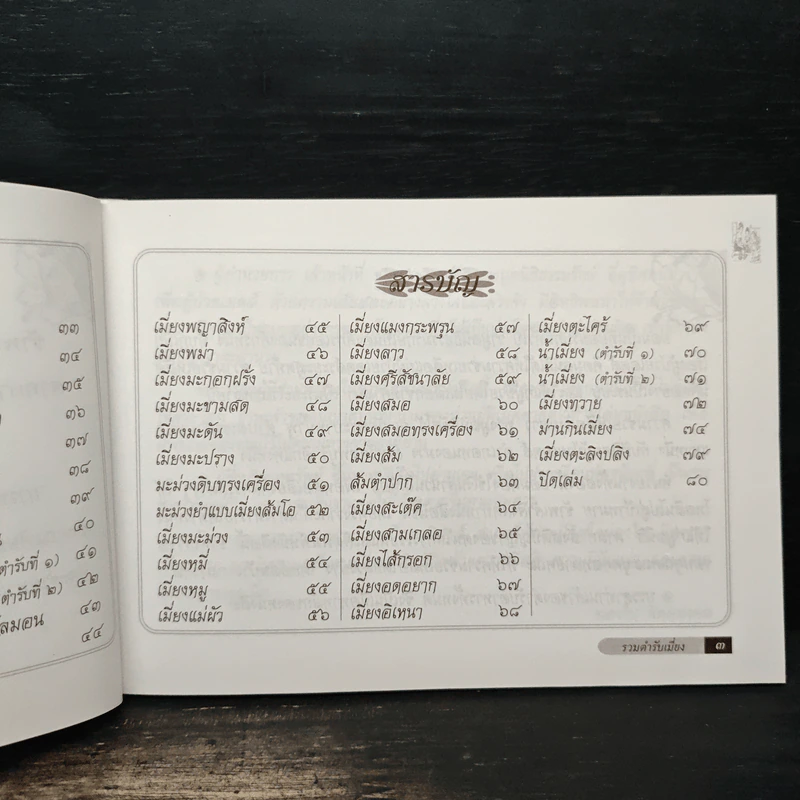 ๓๓
๓๔
๓๕
๓๖
๓๗
๓๘
๓๙
๔๐
ตำรับที่ ๑) ๔๑
ตำรับที่ ๒) ๔๒
ลมอน ๔๓
๔๔
สารบัญ
เมี่ยงพญาสิงห์ ๔๕
เมี่ยงพม่า ๔๖
เมี่ยงมะกอกฝรั่ง ๔๗
เมี่ยงมะขามสด ๔๘
เมี่ยงมะดัน ๔๙
เมี่ยงมะปราง ๕๐
มะม่วงดิบทรงเครื่อง ๕๑
มะม่วงยำแบบเมี่ยงส้มโอ ๕๒
เมี่ยงมะม่วง ๕๓
เมี่ยงหมี่ ๕๔
เมี่ยงหมู ๕๕
เมี่ยงแม่ผัว ๕๖
เมี่ยงแมงกะพรุน ๕๗
เมี่ยงลาว ๕๘
เมี่ยงศรีสัชนาลัย ๕๙
เมี่ยงสมอ ๖๐
เมี่ยงสมอทรงเครื่อง ๖๑
เมี่ยงส้ม ๖๒
ส้มตำปาก ๖๓
เมี่ยงสะเต๊ค ๖๔
เมี่ยงสามเกลอ ๖๕
เมี่ยงไส้กรอก ๖๖
เมี่ยงอดอยาก ๖๗
เมี่ยงอิเหนา ๖๘
เมี่ยงตะไคร้ ๖๙
น้ำเมี่ยง (ตำรับที่ ๑) ๗๐
น้ำเมี่ยง (ตำรับที่ ๒) ๗๑
เมี่ยงทวาย ๗๒
ม่านกินเมี่ยง ๗๔
เมี่ยงตะลิงปลิง ๗๙
ปิดเล่ม ๘๐
รวมตำรับเมี่ยง ๓